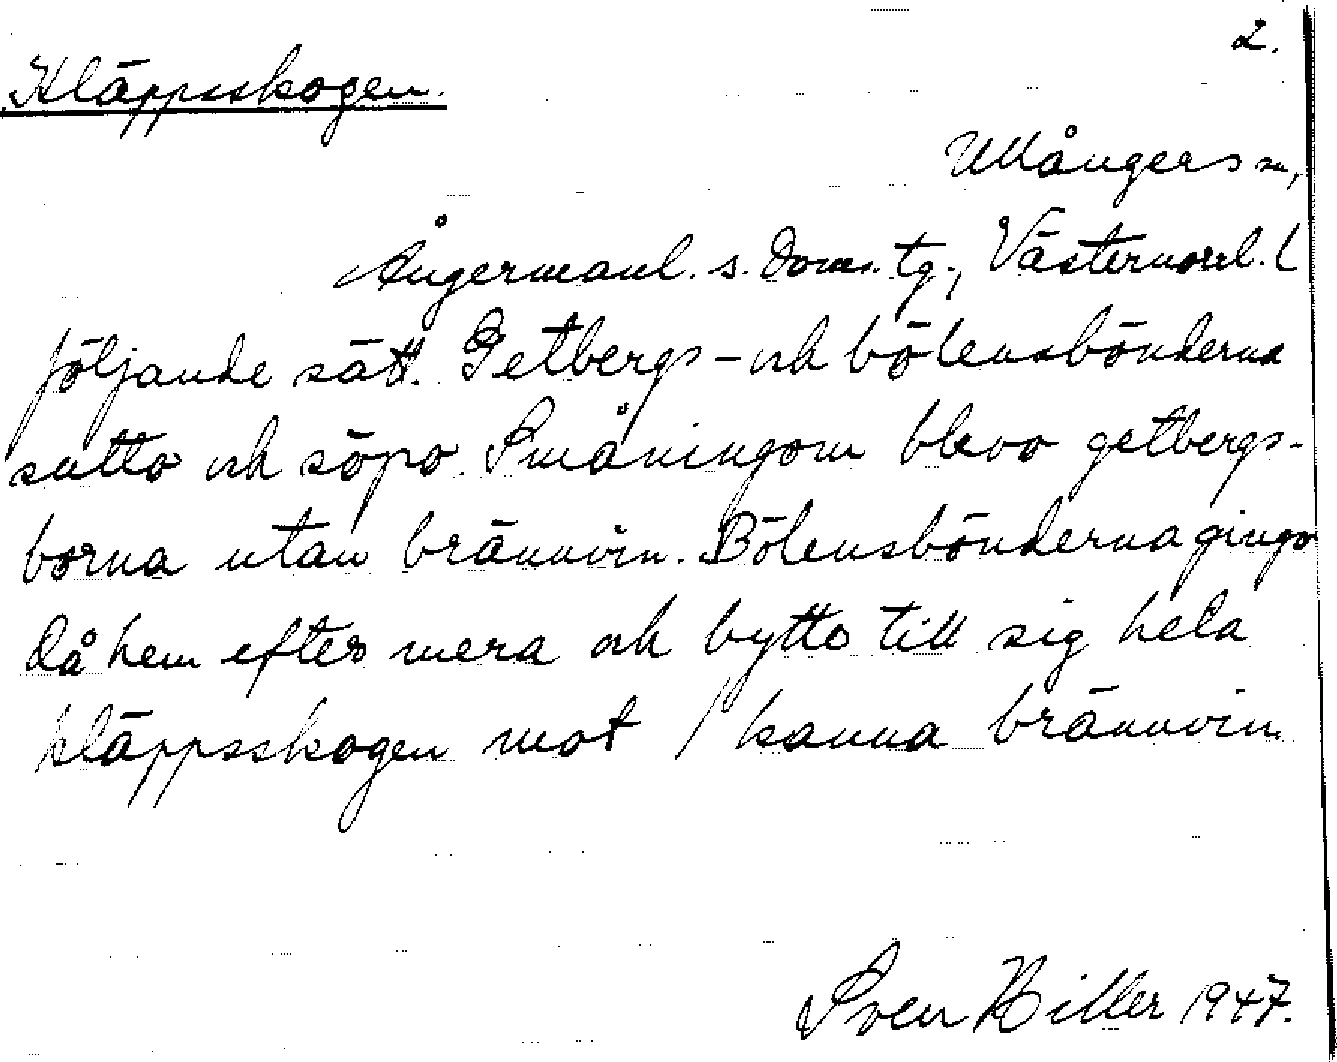 2.
Kläppsskogen.
Ullångers sn,
Ångermanl. s. doms. tg., Västernorrl. l
följande sätt. Getbergs- och bölensbönderna
sutto och söpo. Småningom blevo getbergs-
borna utan brännvin. Bölensbönderna gingo
då hem efter mera och bytte till sig hela
kläppsskogen mot 1 kanna brännvin
Sven Hiller 1947.